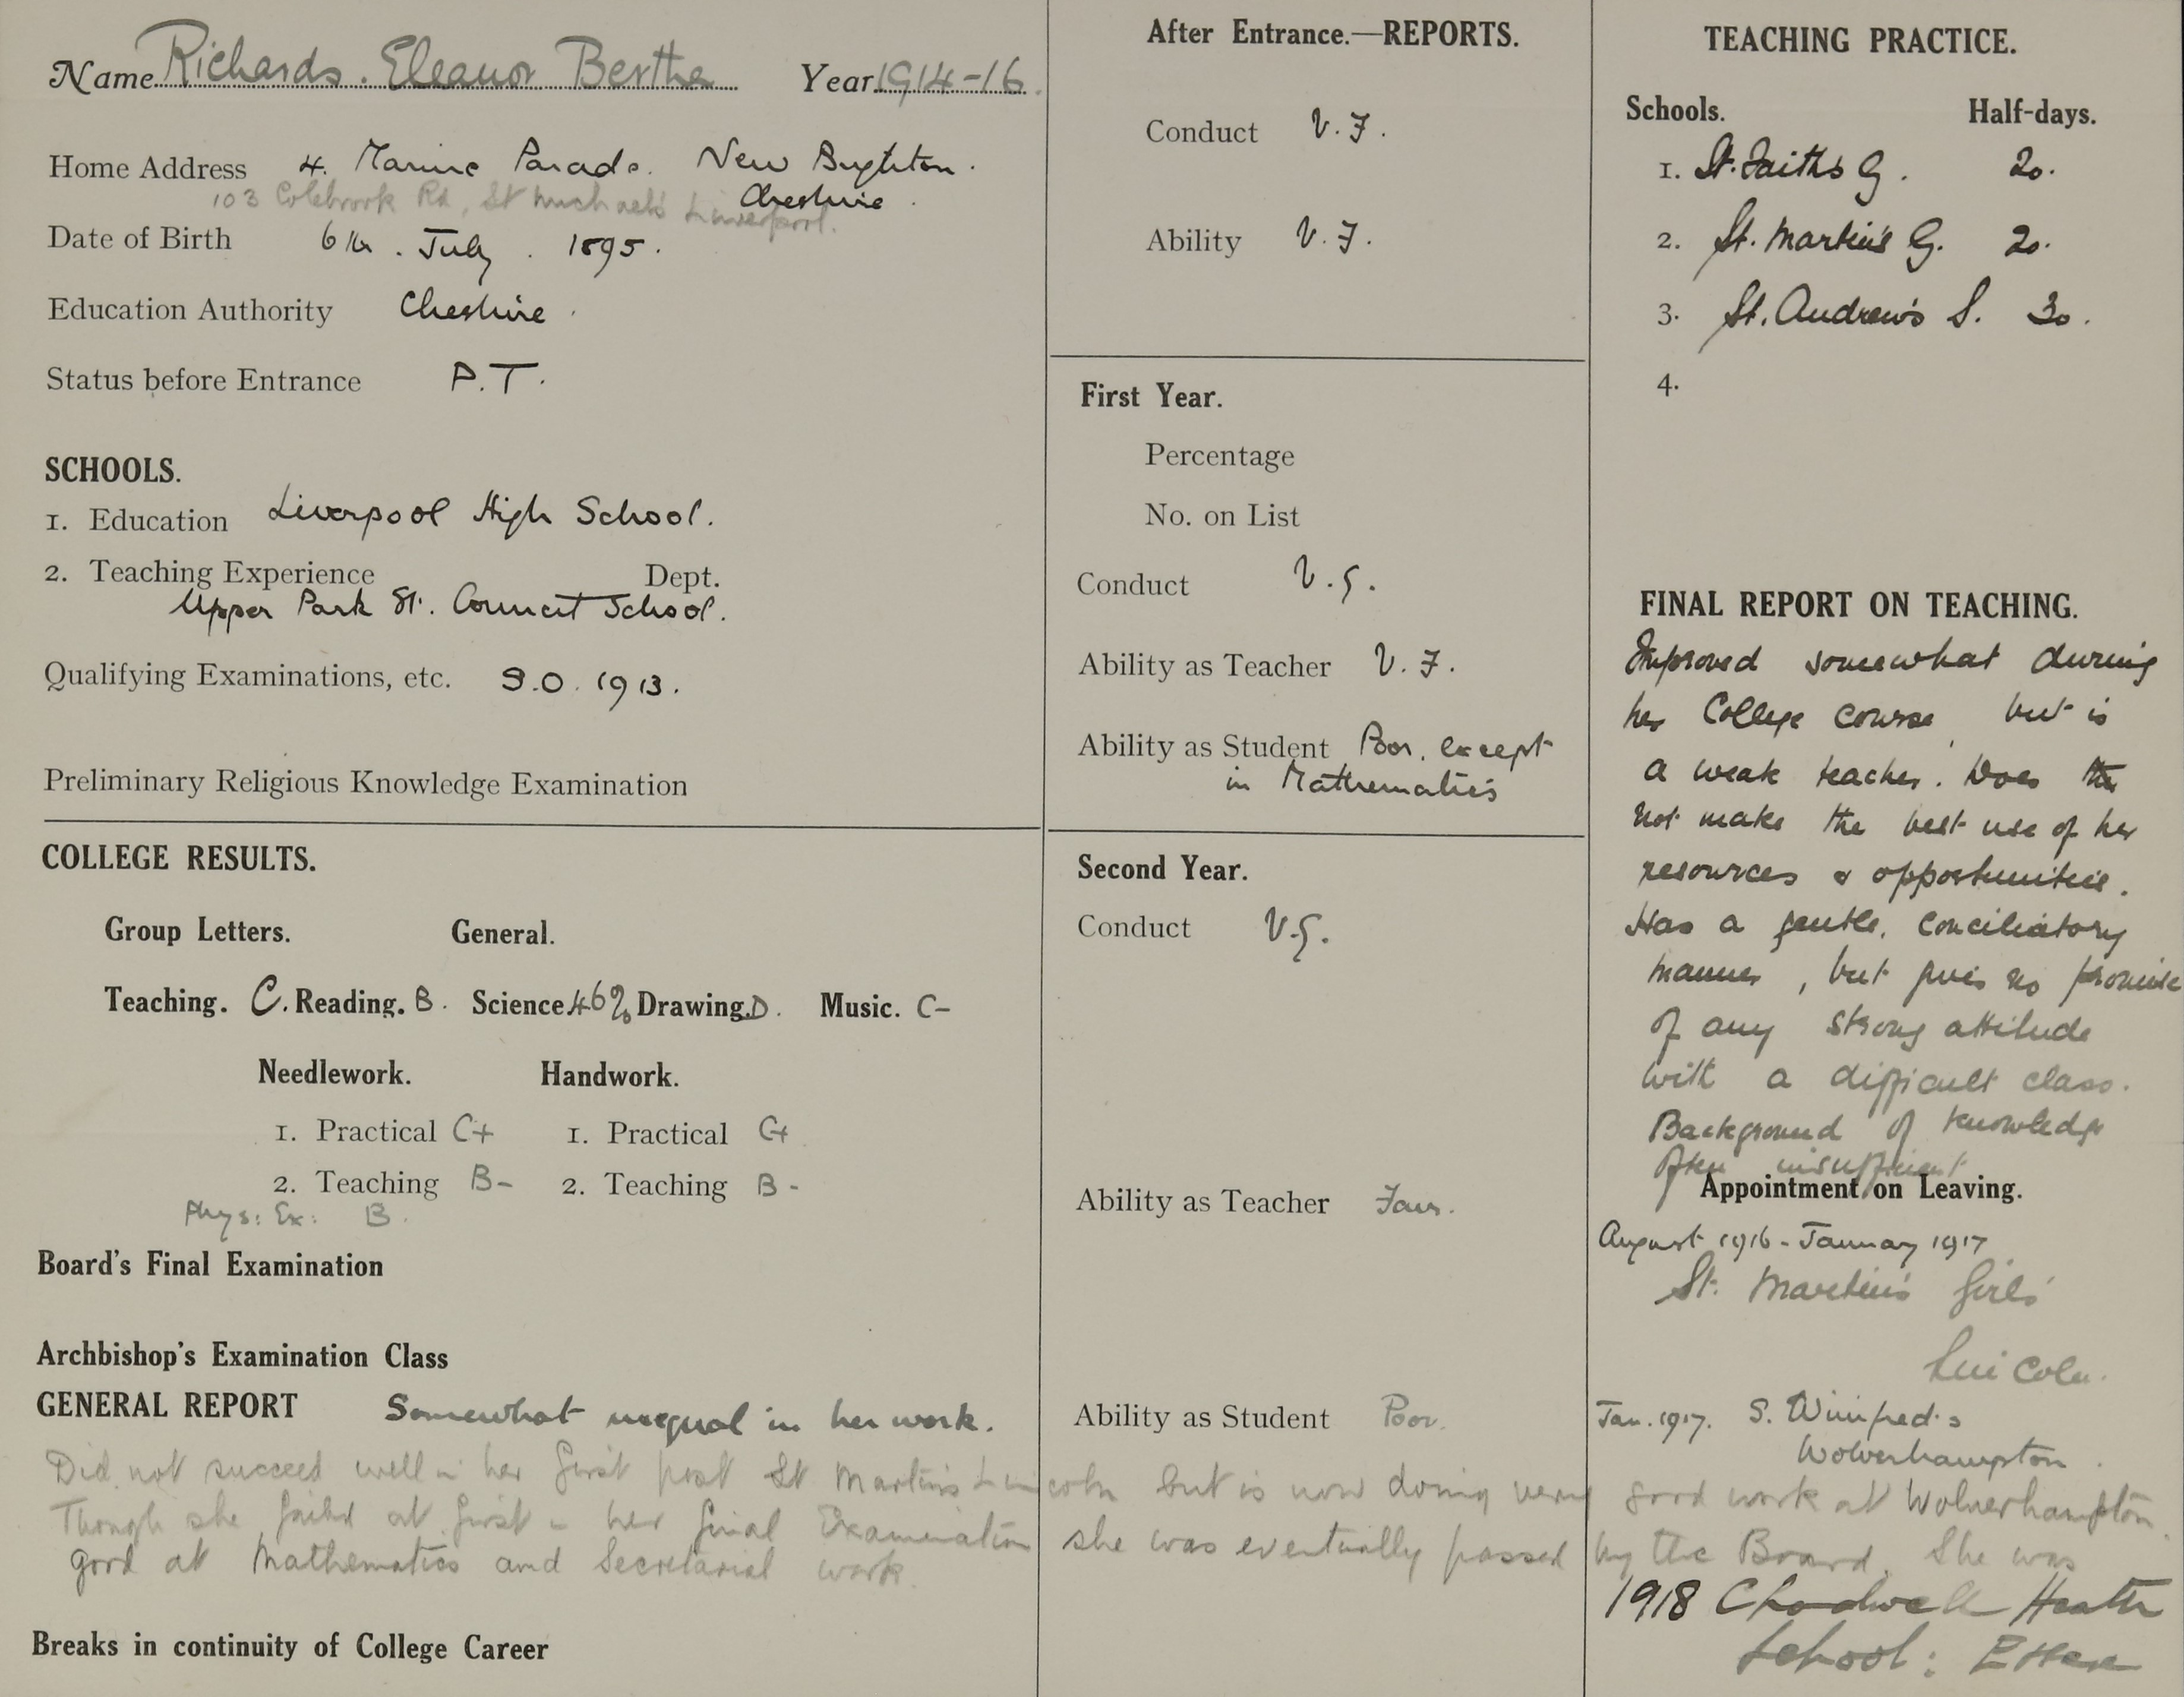 Name Richards. Eleanor Bertha Year 1914-16.
Home Address 4. Marine Parade. New Brighton.
Cheshire.
103 Colebrook Rd, St Michael's Liverpool.
Date of Birth 6th. July. 1895.
Education Authority Cheshire.
Status before Entrance P.T.
SCHOOLS.
1. Education Liverpool High School.
2. Teaching Experience Dept.
Upper Park St. Council School.
Qualifying Examinations, etc. S.O. 1913.
Preliminary Religious Knowledge Examination
COLLEGE RESULTS.
Group Letters. General.
Teaching. C. Reading. B. Science 46% Drawing. D. Music. C-
Needlework. Handwork.
1. Practical C+ 1. Practical C+
2. Teaching B- 2. Teaching B-
Phys: Ex: B.
Board's Final Examination
Archbishop's Examination Class
GENERAL REPORT Somewhat unequal in her work.
Did not succeed well in her first post St Martin's Lincoln but is now doing very good work at Wolverhampton.
Though she failed at first in her final Examination she was eventually passed by the Board. She was
good at Mathematics and Secretarial work.
Breaks in continuity of College Career
After Entrance.—REPORTS.
Conduct V.F.
Ability V.F.
First Year.
Percentage
No. on List
Conduct V.G.
Ability as Teacher V.F.
Ability as Student Poor, except
in Mathematics
Second Year.
Conduct V.G.
Ability as Teacher Fair.
Ability as Student Poor.
TEACHING PRACTICE.
Schools. Half-days.
1. St. Faith's G. 20.
2. St. Martin's G. 20.
3. St. Andrew's S. 30.
4.
FINAL REPORT ON TEACHING.
Improved somewhat during
her College course, but is
a weak teacher. Does the
not make the best use of her
resources & opportunities.
Has a gentle, conciliatory
manner, but gives no promise
of any strong attitude
with a difficult class.
Background of knowledge
often insufficient
Appointment on Leaving.
August 1916 - January 1917
St. Martin's Girls'
Lincoln.
Jan. 1917. S. Winifred's
Wolverhampton.
1918 Chadwell Heath
School: Essex